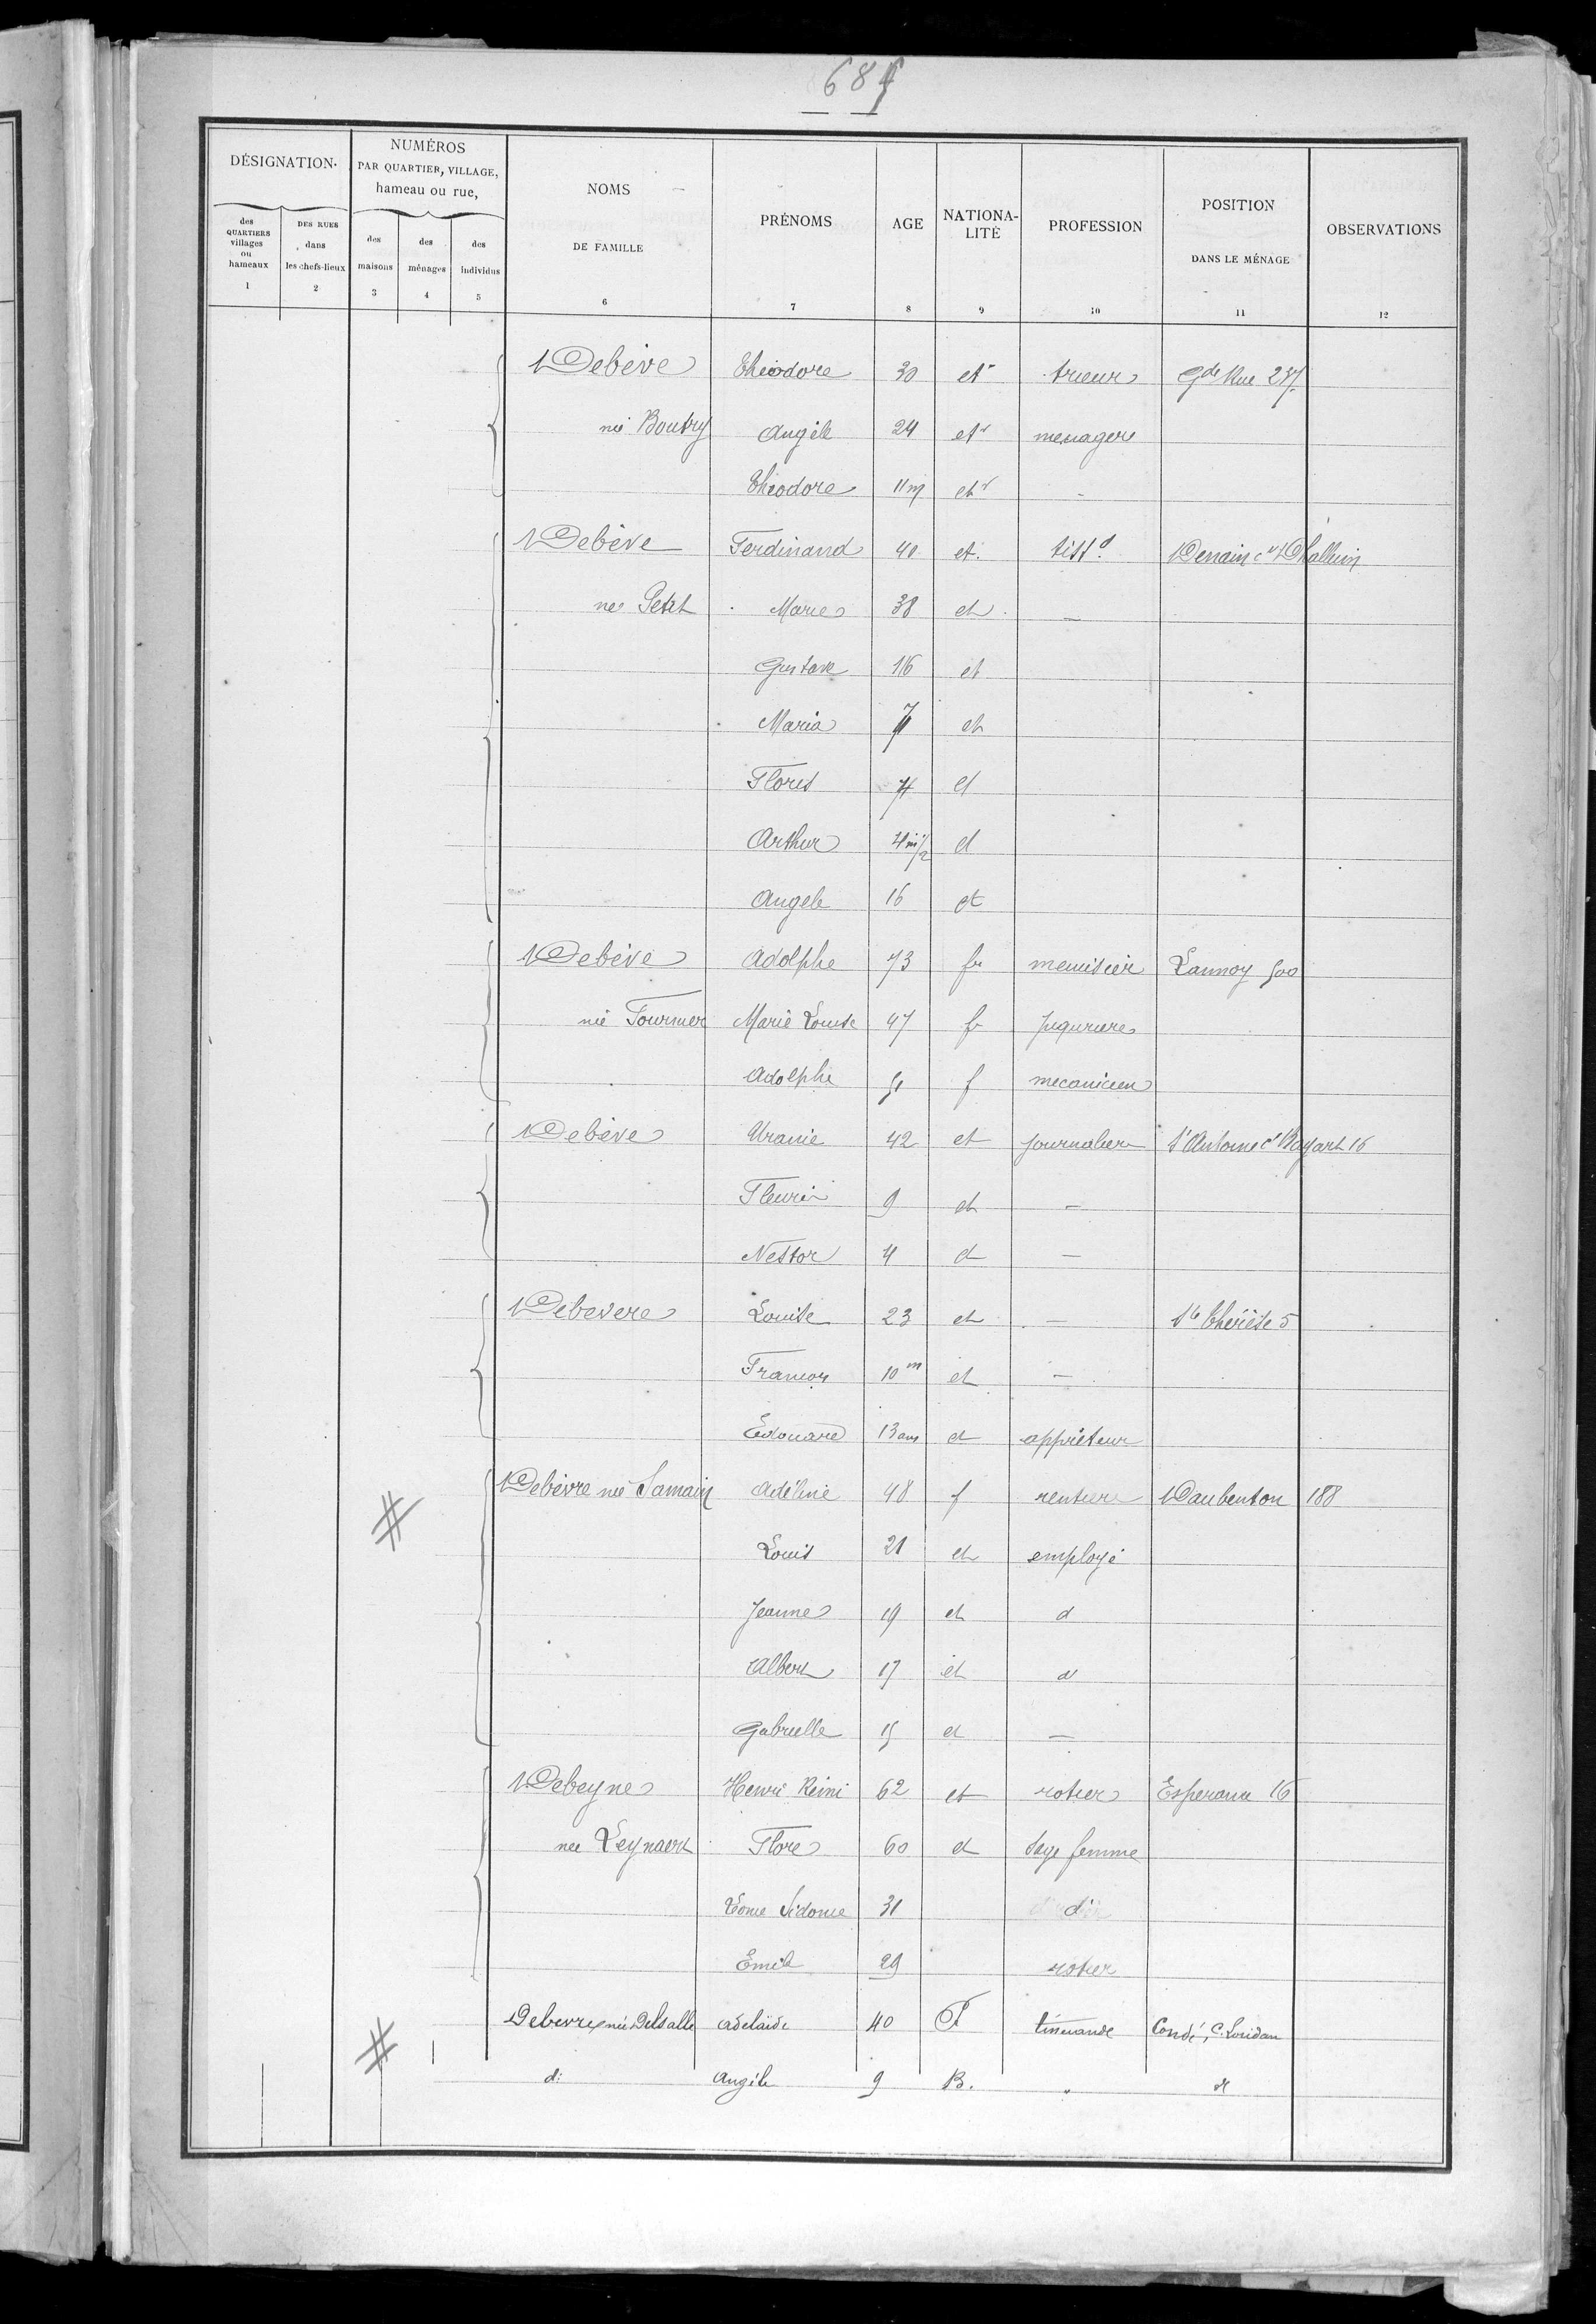 684
DÉSIGNATION
NUMÉROS
PAR QUARTIER, VILLAGE,
hameau ou rue,
des QUARTIERS villages ou hameaux 1
DES RUES dans les chefs-lieux 2
des maisons 3
des ménages 4
des individus 5
NOMS DE FAMILLE 6
PRÉNOMS 7
AGE 8
NATIONALITÉ 9
PROFESSION 10
POSITION DANS LE MÉNAGE 11
OBSERVATIONS 12
Debève Théodore 30 etr trieur Gde Rue 237
née Boutry Angèle 24 etr menagere
Théodore 11m etr -
Debève Ferdinand 40 et. tissd Denain cr Dhalluin
née Petit Marie 38 et —
Gustave 16 et
Maria 7 et
Floris 4 et
Arthur 4m 1/2 et
Angele 16 et
Debève Adolphe 73 fr menuisier Lannoy 500
née Fournier Marie Louise 47 fr piqurière
Adolphe 51 f mecanicien
Debève Uranie 42 et journaliere St Antoine cr Bayart 16
Fleurie 9 et —
Nestor 4 et —
Debevere Louise 23 et — Ste Thérèse 5
François 10m et —
Edouard 13 ans et appréteur
# Debèvre née Samain Adéline 48 f rentiere Daubenton 188
Louis 21 et employé
Jeanne 19 et d
Albert 17 et d
Gabrielle 15 et —
Debeyne Henri Rémi 62 et rotier Esperance 16
née Leynaert Flore 60 et sage femme
Sidonie 31 do
Emile 29 rotier
# Debevre née Delsalle Adelaïde 40 F tisserande Condé, c. Loridan
do Angèle 9 B. " d